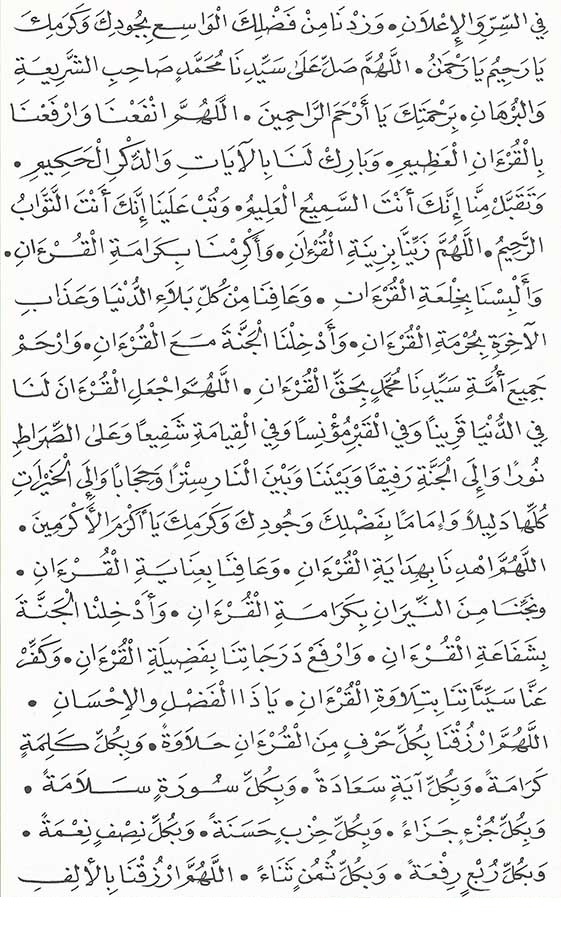 فِي السِّرِّ وَالإِعْلَانِ • وَزِدْنَا مِنْ فَضْلِكَ الْوَاسِعِ بِجُودِكَ وَكَرَمِكَ
يَا رَحِيمُ يَا رَحْمَٰنُ • اللَّهُمَّ صَلِّ عَلَىٰ سَيِّدِنَا مُحَمَّدٍ صَاحِبِ الشَّرِيعَةِ
وَالْبُرْهَانِ • بِرَحْمَتِكَ يَا أَرْحَمَ الرَّاحِمِينَ • اللَّهُمَّ انْفَعْنَا وَارْفَعْنَا
بِالْقُرْءَانِ الْعَظِيمِ • وَبَارِكْ لَنَا بِالْآيَاتِ وَالذِّكْرِ الْحَكِيمِ •
وَتَقَبَّلْ مِنَّا إِنَّكَ أَنْتَ السَّمِيعُ الْعَلِيمُ • وَتُبْ عَلَيْنَا إِنَّكَ أَنْتَ التَّوَّابُ
الرَّحِيمُ • اللَّهُمَّ زَيِّنَّا بِزِينَةِ الْقُرْءَانِ • وَأَكْرِمْنَا بِكَرَامَةِ الْقُرْءَانِ •
وَأَلْبِسْنَا بِخِلْعَةِ الْقُرْءَانِ • وَعَافِنَا مِنْ كُلِّ بَلَاءِ الدُّنْيَا وَعَذَابِ
الآخِرَةِ بِحُرْمَةِ الْقُرْءَانِ • وَأَدْخِلْنَا الْجَنَّةَ مَعَ الْقُرْءَانِ • وَارْحَمْ
جَمِيعَ أُمَّةِ سَيِّدِنَا مُحَمَّدٍ بِحَقِّ الْقُرْءَانِ • اللَّهُمَّ اجْعَلِ الْقُرْءَانَ لَنَا
فِي الدُّنْيَا قَرِينًا وَفِي الْقَبْرِ مُؤْنِسًا وَفِي الْقِيَامَةِ شَفِيعًا وَعَلَى الصِّرَاطِ
نُورًا وَإِلَى الْجَنَّةِ رَفِيقًا وَبَيْنَنَا وَبَيْنَ النَّارِ سِتْرًا وَحِجَابًا وَإِلَى الْخَيْرَاتِ
كُلِّهَا دَلِيلًا وَإِمَامًا بِفَضْلِكَ وَجُودِكَ وَكَرَمِكَ يَا أَكْرَمَ الْأَكْرَمِينَ •
اللَّهُمَّ اهْدِنَا بِهِدَايَةِ الْقُرْءَانِ • وَعَافِنَا بِعِنَايَةِ الْقُرْءَانِ •
وَنَجِّنَا مِنَ النِّيرَانِ بِكَرَامَةِ الْقُرْءَانِ • وَأَدْخِلْنَا الْجَنَّةَ
بِشَفَاعَةِ الْقُرْءَانِ • وَارْفَعْ دَرَجَاتِنَا بِفَضِيلَةِ الْقُرْءَانِ • وَكَفِّرْ
عَنَّا سَيِّئَاتِنَا بِتِلَاوَةِ الْقُرْءَانِ • يَا ذَا الْفَضْلِ وَالإِحْسَانِ •
اللَّهُمَّ ارْزُقْنَا بِكُلِّ حَرْفٍ مِنَ الْقُرْءَانِ حَلَاوَةً • وَبِكُلِّ كَلِمَةٍ
كَرَامَةً • وَبِكُلِّ آيَةٍ سَعَادَةً • وَبِكُلِّ سُورَةٍ سَلَامَةً •
وَبِكُلِّ جُزْءٍ جَزَاءً • وَبِكُلِّ حِزْبٍ حَسَنَةً • وَبِكُلِّ نِصْفٍ نِعْمَةً •
وَبِكُلِّ رُبْعٍ رِفْعَةً • وَبِكُلِّ ثُمُنٍ ثَنَاءً • اللَّهُمَّ ارْزُقْنَا بِالْأَلِفِ